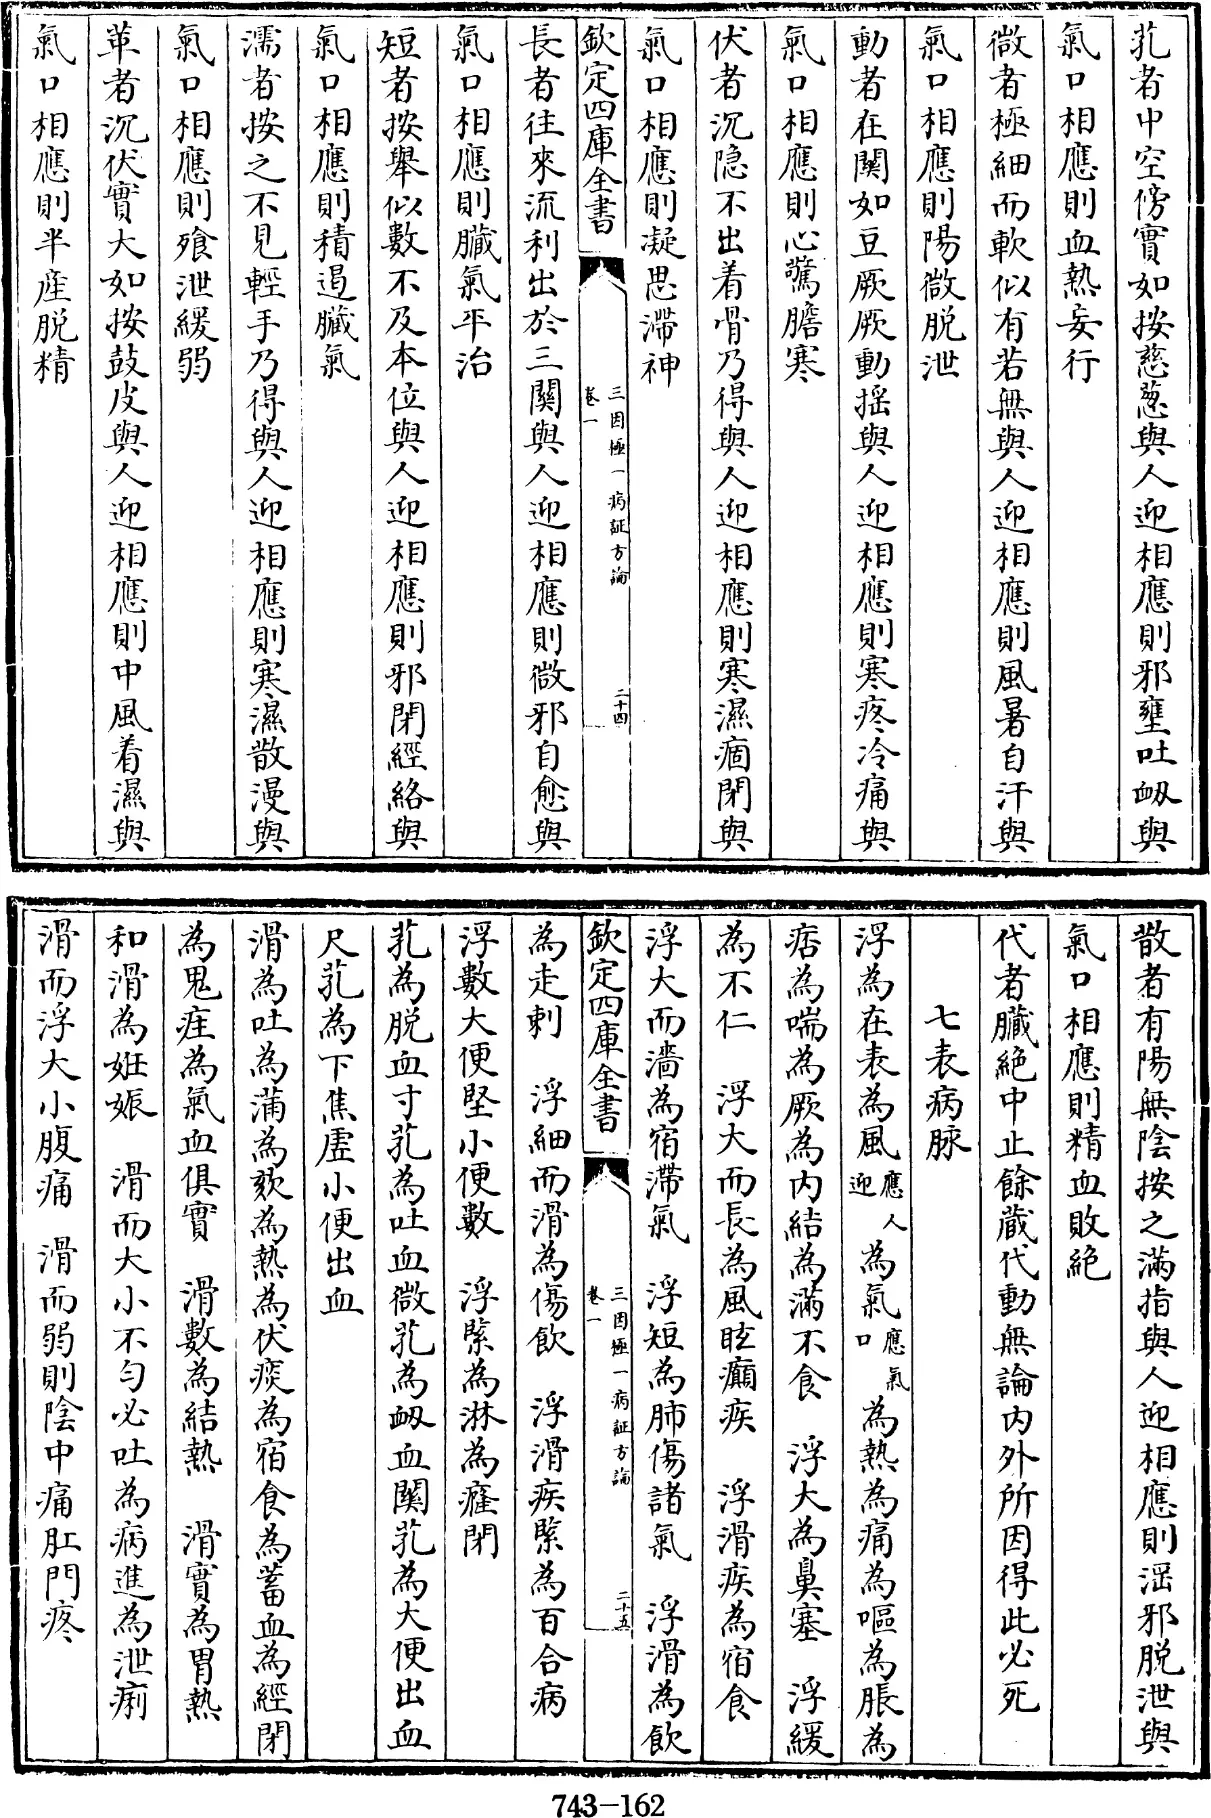 芤者中空傍實如按慈葱與人迎相應則邪壅吐衂與
氣口相應則血熱妄行
微者極細而軟似有若無與人迎相應則風暑自汗與
氣口相應則陽微脱泄
動者在關如豆厥厥動揺與人迎相應則寒疼冷痛與
氣口相應則心驚膽寒
伏者沉隐不出着骨乃得與人迎相應則寒濕痼閉與
氣口相應則凝思滯神
欽定四庫全書
三因極一病証方論
卷一
二十四
長者往來流利出於三關與人迎相應則微邪自愈與
氣口相應則臟氣平治
短者按舉似數不及本位與人迎相應則邪閉經絡與
氣口相應則積遏臟氣
濡者按之不見輕手乃得與人迎相應則寒濕散漫與
氣口相應則飱泄緩弱
革者沉伏實大如按鼓皮與人迎相應則中風着濕與
氣口相應則半産脱精
散者有陽無陰按之滿指與人迎相應則淫邪脱泄與
氣口相應則精血敗絶
代者臟絶中止餘蔵代動無論内外所因得此必死
七表病脉
浮為在表為風應人迎為氣應氣口為熱為痛為嘔為脹為
痞為喘為厥為内結為滿不食 浮大為鼻塞 浮緩
為不仁 浮大而長為風眩癲疾 浮滑疾為宿食
浮大而濇為宿滯氣 浮短為肺傷諸氣 浮滑為飲
欽定四庫全書
三因極一病証方論
卷一
二十五
為走刺 浮細而滑為傷飲 浮滑疾緊為百合病
浮數大便堅小便數 浮緊為淋為癃閉
芤為脱血寸芤為吐血微芤為衂血關芤為大便出血
尺芤為下焦虚小便出血
滑為吐為滿為欬為熱為伏痰為宿食為蓄血為經閉
為鬼疰為氣血俱實 滑數為結熱 滑實為胃熱
和滑為妊娠 滑而大小不匀必吐為病進為泄痢
滑而浮大小腹痛 滑而弱則陰中痛肛門疼
743-162